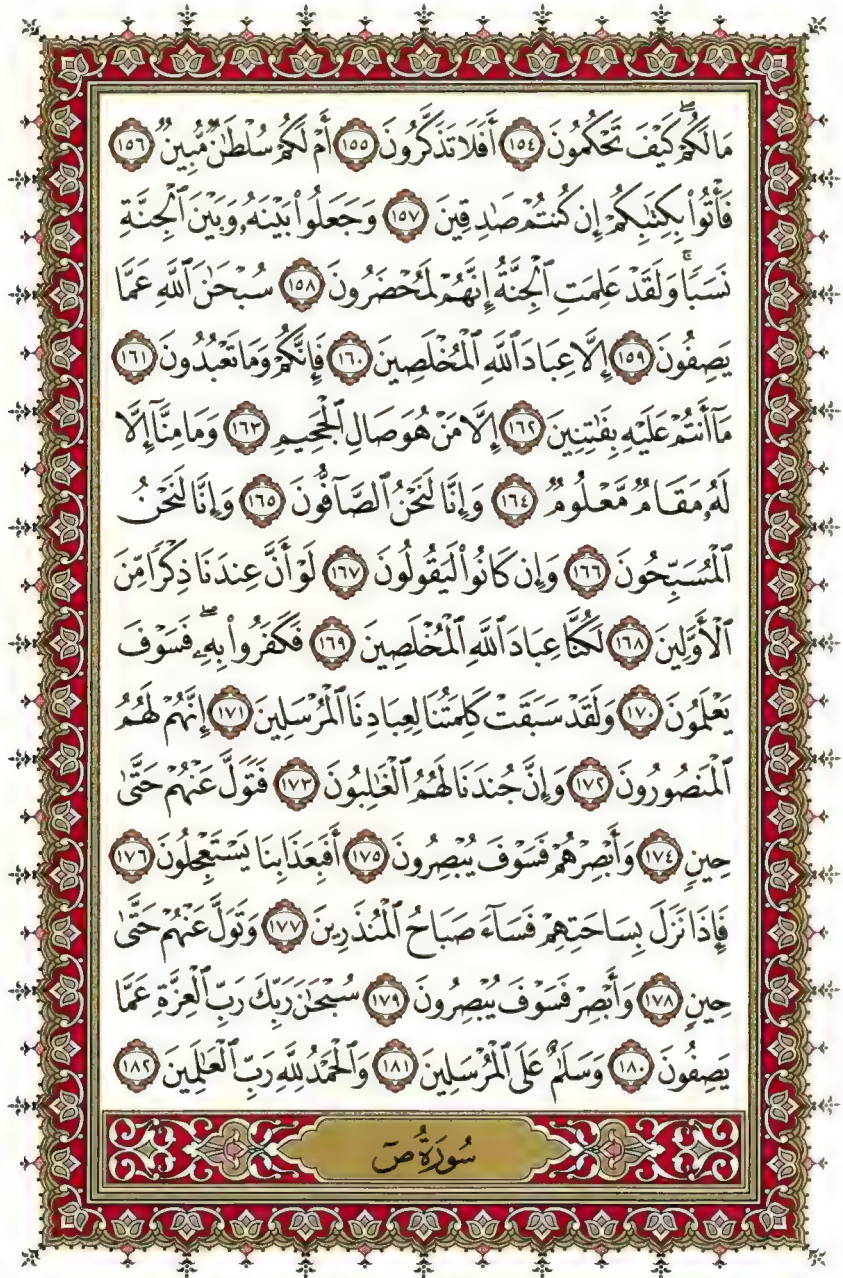 مَا لَكُمْ كَيْفَ تَحْكُمُونَ ١٥٤ أَفَلَا تَذَكَّرُونَ ١٥٥ أَمْ لَكُمْ سُلْطَٰنٌ مُّبِينٌ ١٥٦
فَأْتُوا۟ بِكِتَٰبِكُمْ إِن كُنتُمْ صَٰدِقِينَ ١٥٧ وَجَعَلُوا۟ بَيْنَهُۥ وَبَيْنَ ٱلْجِنَّةِ
نَسَبًاۚ وَلَقَدْ عَلِمَتِ ٱلْجِنَّةُ إِنَّهُمْ لَمُحْضَرُونَ ١٥٨ سُبْحَٰنَ ٱللَّهِ عَمَّا
يَصِفُونَ ١٥٩ إِلَّا عِبَادَ ٱللَّهِ ٱلْمُخْلَصِينَ ١٦٠ فَإِنَّكُمْ وَمَا تَعْبُدُونَ ١٦١
مَآ أَنتُمْ عَلَيْهِ بِفَٰتِنِينَ ١٦٢ إِلَّا مَنْ هُوَ صَالِ ٱلْجَحِيمِ ١٦٣ وَمَا مِنَّآ إِلَّا
لَهُۥ مَقَامٌ مَّعْلُومٌ ١٦٤ وَإِنَّا لَنَحْنُ ٱلصَّآفُّونَ ١٦٥ وَإِنَّا لَنَحْنُ
ٱلْمُسَبِّحُونَ ١٦٦ وَإِن كَانُوا۟ لَيَقُولُونَ ١٦٧ لَوْ أَنَّ عِندَنَا ذِكْرًا مِّنَ
ٱلْأَوَّلِينَ ١٦٨ لَكُنَّا عِبَادَ ٱللَّهِ ٱلْمُخْلَصِينَ ١٦٩ فَكَفَرُوا۟ بِهِۦۖ فَسَوْفَ
يَعْلَمُونَ ١٧٠ وَلَقَدْ سَبَقَتْ كَلِمَتُنَا لِعِبَادِنَا ٱلْمُرْسَلِينَ ١٧١ إِنَّهُمْ لَهُمُ
ٱلْمَنصُورُونَ ١٧٢ وَإِنَّ جُندَنَا لَهُمُ ٱلْغَٰلِبُونَ ١٧٣ فَتَوَلَّ عَنْهُمْ حَتَّىٰ
حِينٍ ١٧٤ وَأَبْصِرْهُمْ فَسَوْفَ يُبْصِرُونَ ١٧٥ أَفَبِعَذَابِنَا يَسْتَعْجِلُونَ ١٧٦
فَإِذَا نَزَلَ بِسَاحَتِهِمْ فَسَآءَ صَبَاحُ ٱلْمُنذَرِينَ ١٧٧ وَتَوَلَّ عَنْهُمْ حَتَّىٰ
حِينٍ ١٧٨ وَأَبْصِرْ فَسَوْفَ يُبْصِرُونَ ١٧٩ سُبْحَٰنَ رَبِّكَ رَبِّ ٱلْعِزَّةِ عَمَّا
يَصِفُونَ ١٨٠ وَسَلَٰمٌ عَلَى ٱلْمُرْسَلِينَ ١٨١ وَٱلْحَمْدُ لِلَّهِ رَبِّ ٱلْعَٰلَمِينَ ١٨٢
سُورَةُ صٓ